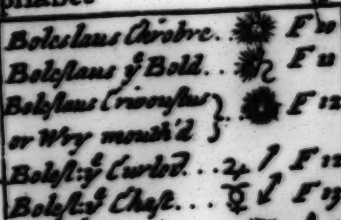 Boleslaus Chrobre. F 10
Boleslaus yᵉ Bold.. F 11
Boleslaus Crivoustus
or Wry mouth'd } .. F 12
Bolesl:yᵉ Curled... ♃ F 12
Bolesl:yᵉ Chast... ☿ F 13